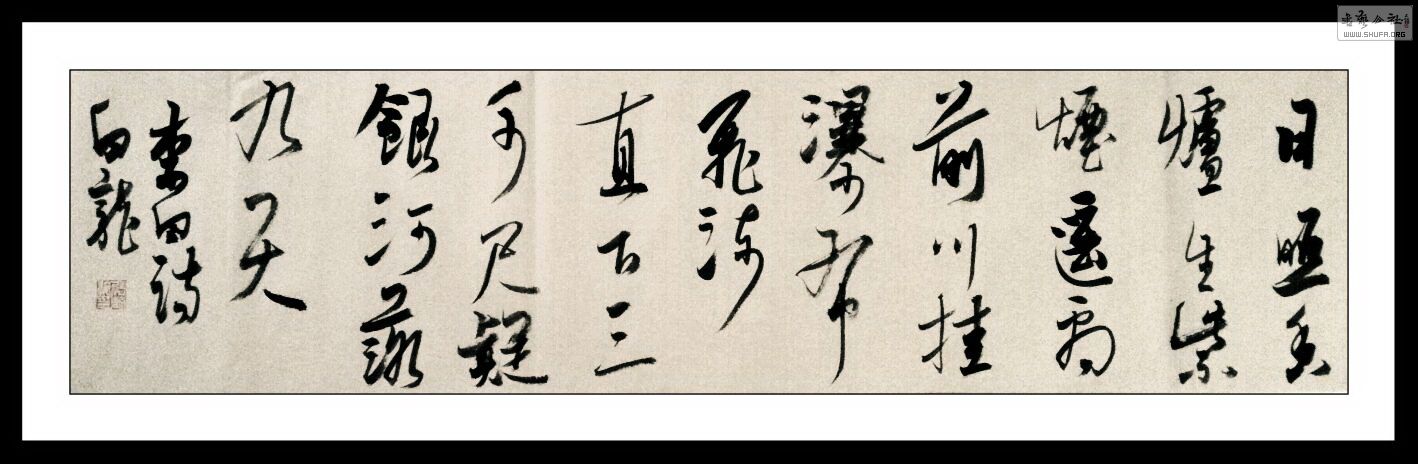 日照香
爐生紫
煙遙看
前川挂
瀑布
飛流
直下三
千尺疑
銀河落
九天
李白詩
白龍
WWW.SHUFA.ORG